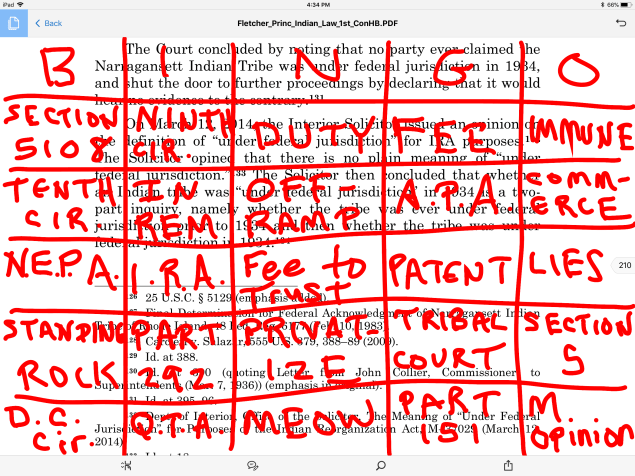 iPad 4:34 PM 66%
Back Fletcher_Princ_Indian_Law_1st_ConHB.PDF
The Court concluded by noting that no party ever claimed the
Narragansett Indian Tribe was under federal jurisdiction in 1934,
and shut the door to further proceedings by declaring that it would
hear no evidence to the contrary.131
On March 12, 2014, the Interior Solicitor issued an opinion on
the definition of "under federal jurisdiction" for IRA purposes.
The Solicitor opined that there is no plain meaning of "under
federal jurisdiction." 133 The Solicitor then concluded that whether
an Indian tribe was "under federal jurisdiction" in 1934 is a two-
part inquiry, namely whether the tribe was ever under federal
jurisdiction prior to 1934 and then whether the tribe was under
federal jurisdiction in 1934.134
B I N G O
SECTION 5108 NINTH CIR. DUTY FEE IMMUNE
TENTH CIR IN REM OFF-RAMP A.P.A. COMM-ERCE
N.E.P.A. I.R.A. Fee to Trust PATENT LIES
210
STANDING ROCK PART 292 TRIBAL COURT SECTION 5
D.C. Cir. Q.T.A MEOW PART 151 M Opinion
26 25 U.S.C. § 5129 (emphasis added).
27 Final Determination for Federal Acknowledgment of Narragansett Indian
Tribe of Rhode Island, 48 Fed. Reg. 6177 (Feb. 10, 1983).
28 Carcieri v. Salazar, 555 U.S. 379, 388–89 (2009).
29 Id. at 388.
30 Id. at 390 (quoting Letter from John Collier, Commissioner to
Superintendents (Mar. 7, 1936)) (emphasis in original).
31 Id. at 395–96.
Dept. of Interior, Office of the Solicitor, The Meaning of "Under Federal
Jurisdiction" for Purposes of the Indian Reorganization Act, M-37029 (March 12,
2014)